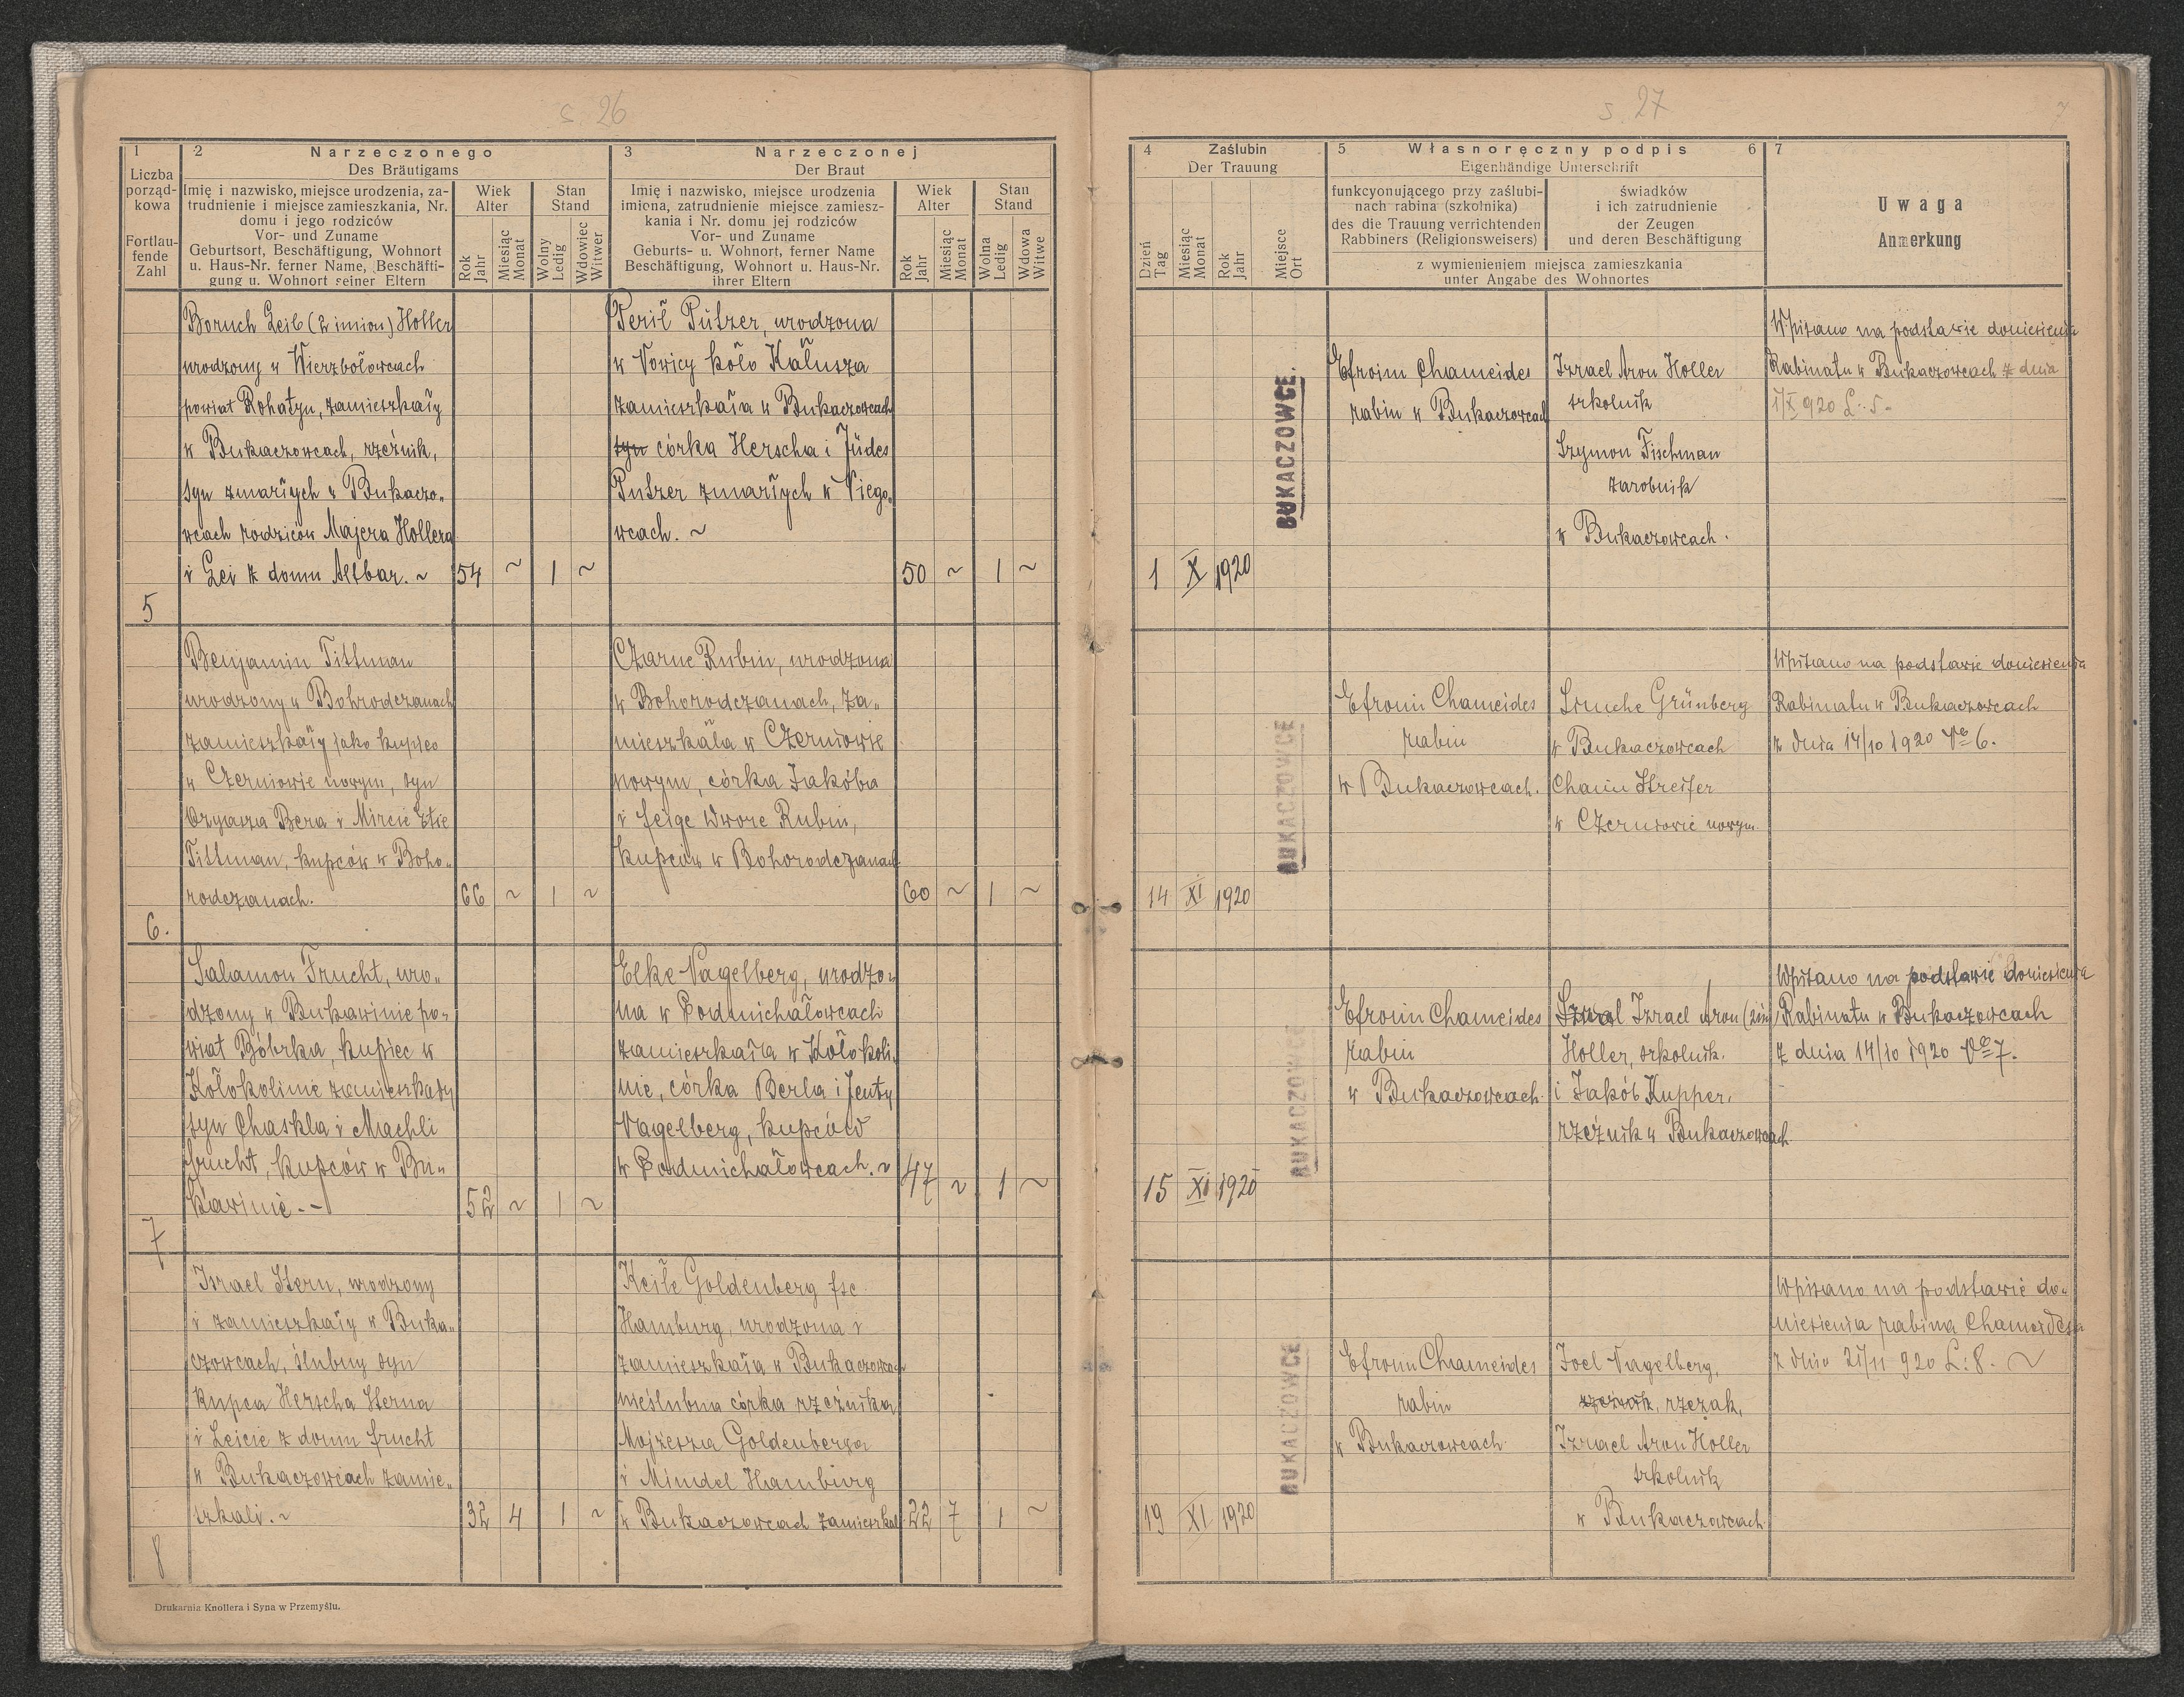 s. 26
1
Liczba
porząd-
kowa
Fortlau-
fende
Zahl
2 Narzeczonego
Des Bräutigams
Imię i nazwisko, miejsce urodzenia, za-
trudnienie i miejsce zamieszkania, Nr.
domu i jego rodziców
Vor- und Zuname
Geburtsort, Beschäftigung, Wohnort
u. Haus-Nr. ferner Name, Beschäfti-
gung u. Wohnort seiner Eltern
Wiek
Alter
Rok
Jahr
Miesiąc
Monat
Stan
Stand
Wolny
Ledig
Wdowiec
Witwer
3 Narzeczonej
Der Braut
Imię i nazwisko, miejsce urodzenia
imiona, zatrudnienie miejsce zamiesz-
kania i Nr. domu jej rodziców
Vor- und Zuname
Geburts- u. Wohnort, ferner Name
Beschäftigung, Wohnort u. Haus-Nr.
ihrer Eltern
Wiek
Alter
Rok
Jahr
Miesiąc
Monat
Stan
Stand
Wolna
Ledig
Wdowa
Witwe
Boruch Leib (2 imion) Holler
urodzony w Wierzbołowcach
powiat Rohatyn, zamieszkały
w Bukaczowcach, rzeźnik,
syn zmarłych w Bukaczo„
wcach rodziców Majera Hollera
i Lei z domu Altbar. ~ 54 ~ 1 ~
5
Perił Putzer, urodzona
w Nowicy koło Kałusza
zamieszkała w Bukaczowcach
syn córka Herscha i Jüdes
Putzer zmarłych w Niego„
wcach. ~
50 ~ 1 ~
Benjamin Tittman
urodzony w Bohrodczanach
zamieszkały jako kupiec
w Czerniowie nowym, syn
Ozyasza Bera i Mircie Etie
Tittman, kupców w Boho„
rodczanach. 66 ~ 1 ~
6.
Czarne Rubin, urodzona
w Bohorodczanach, za„
mieszkała w Czerniowie
nowym, córka Jakóba
i feige Dwore Rubin,
kupców w Bohorodczanach
60 ~ 1 ~
Salamon Frucht, uro„
dzony w Bukawinie po„
wiat Bóbrka, kupiec w
Kołokolinie zamieszkały
syn Chaskla i Machli
frucht, kupców w Bu„
kawinie. - 52 ~ 1 ~
7
Elke Nagelberg, urodzo„
na w Podmichałowcach
zamieszkała w Kołokoli„
nie, córka Berla i Jenty
Nagelberg, kupców
w Podmichałowcach. ~ 47 ~ 1 ~
Israel Stern, urodzony
i zamieszkały w Buka„
czowcach, ślubny syn
kupca Herscha Sterna
i Leicie z domu frucht
w Bukaczowcach zamie„
szkali. ~ 32 4 1 ~
8
Keile Goldenberg fsc.
Hamburg, urodzona i
zamieszkała w Bukaczowcach
nieślubna córka rzeźnika
Mojżesza Goldenberga
i Mindel Hamburg
w Bukaczowcach zamieszkali 22 7 1 ~
Drukarnia Knollera i Syna w Przemyślu.
s. 27
7
4 Zaślubin
Der Trauung
Dzień
Tag
Miesiąc
Monat
Rok
Jahr
Miejsce
Ort
5 Własnoręczny podpis 6
Eigenhändige Unterschrift
funkcyonującego przy zaślubi-
nach rabina (szkolnika)
des die Trauung verrichtenden
Rabbiners (Religionsweisers)
świadków
i ich zatrudnienie
der Zeugen
und deren Beschäftigung
z wymienieniem miejsca zamieszkania
unter Angabe des Wohnortes
7
Uwaga
Anmerkung
1 X 1920
BUKACZOWCE.
Efroim Chameides
rabin w Bukaczowcach
Izrael Aron Holler
szkolnik
Szymon Fischman
zarobnik
w Bukaczowcach.
Wpisano na podstawie doniesienia
Rabinatu w Bukaczowcach z dnia
1/X 920 L: 5-
14 XI 1920
BUKACZOWCE
Efroim Chameides
rabin
w Bukaczowcach.
Sruche Grünberg
w Bukaczowcach
Chaim Streifer
w Czerniowie nowym.
Wpisano na podstawie doniesienia
Rabinatu w Bukaczowcach
z dnia 14/10 1920 No 6.
15 XI 1920
BUKACZOWCE
Efroim Chameides
rabin
w Bukaczowcach.
Izrael Aron (2 im)
Holler, szkolnik.
i Jakób Kupper,
rzeźnik w Bukaczowcach.
Wpisano na podstawie doniesienia
Rabinatu w Bukaczowcach
z dnia 14/10 1920 No 7.
19 XI 1920
BUKACZOWCE
Efroim Chameides
rabin
w Bukaczowcach
Joel Nagelberg,
rzeźnik, rzezak,
Izrael Aron Holler
szkolnik
w Bukaczowcach
Wpisano na podstawie do„
niesienia rabina Chameidesa
z dnia 21/11 920 L: 8. ~